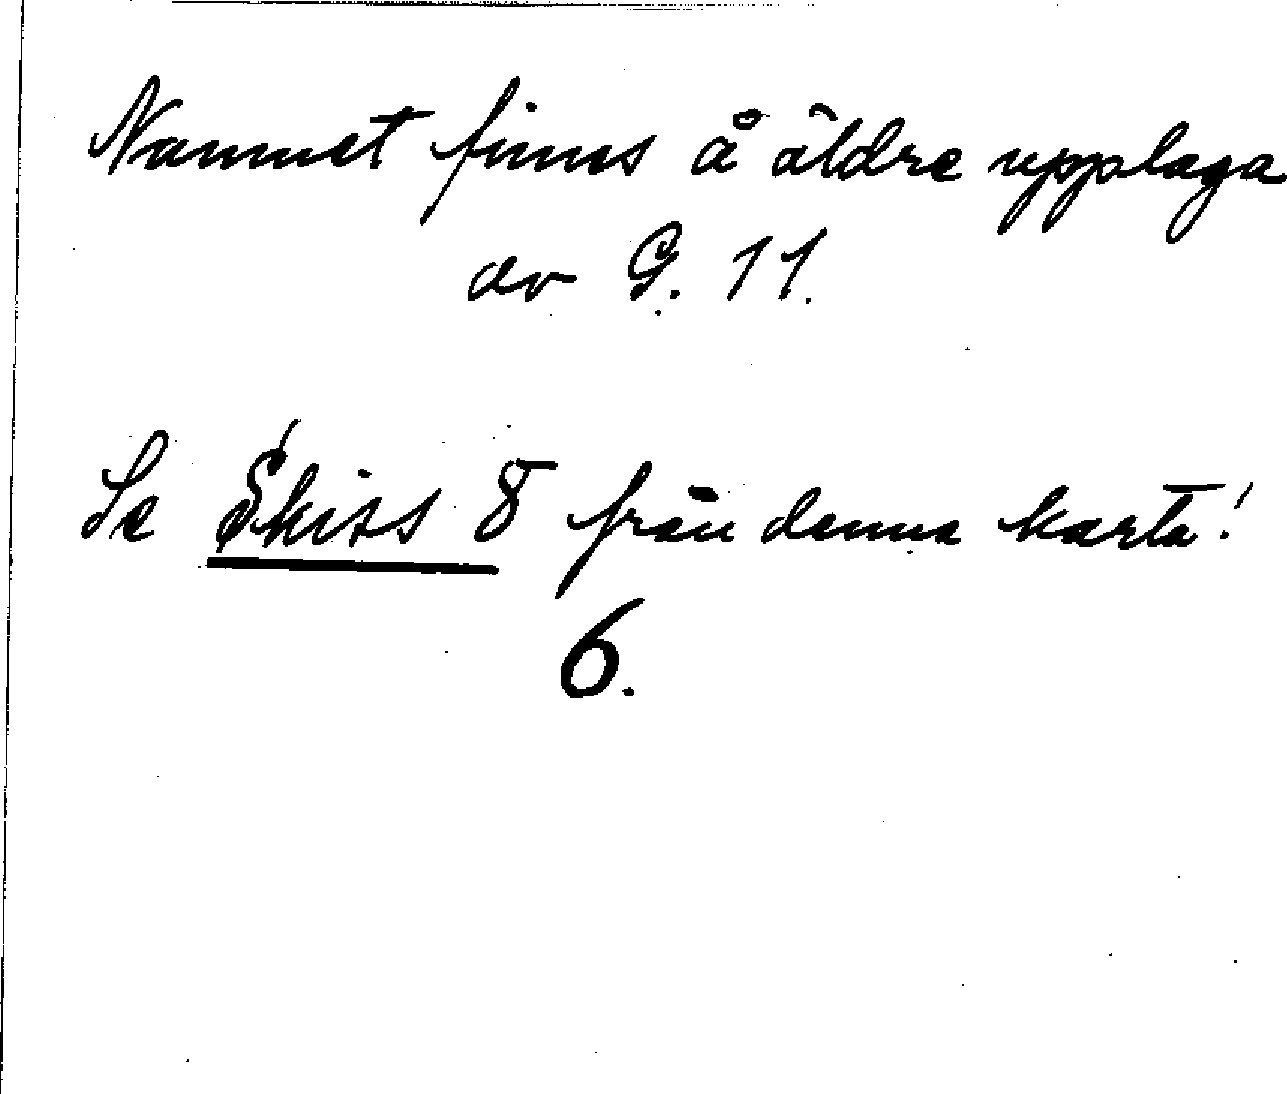 Namnet finns å äldre upplaga
av G. 11.
Se Skiss 8 från denna karta!
6.